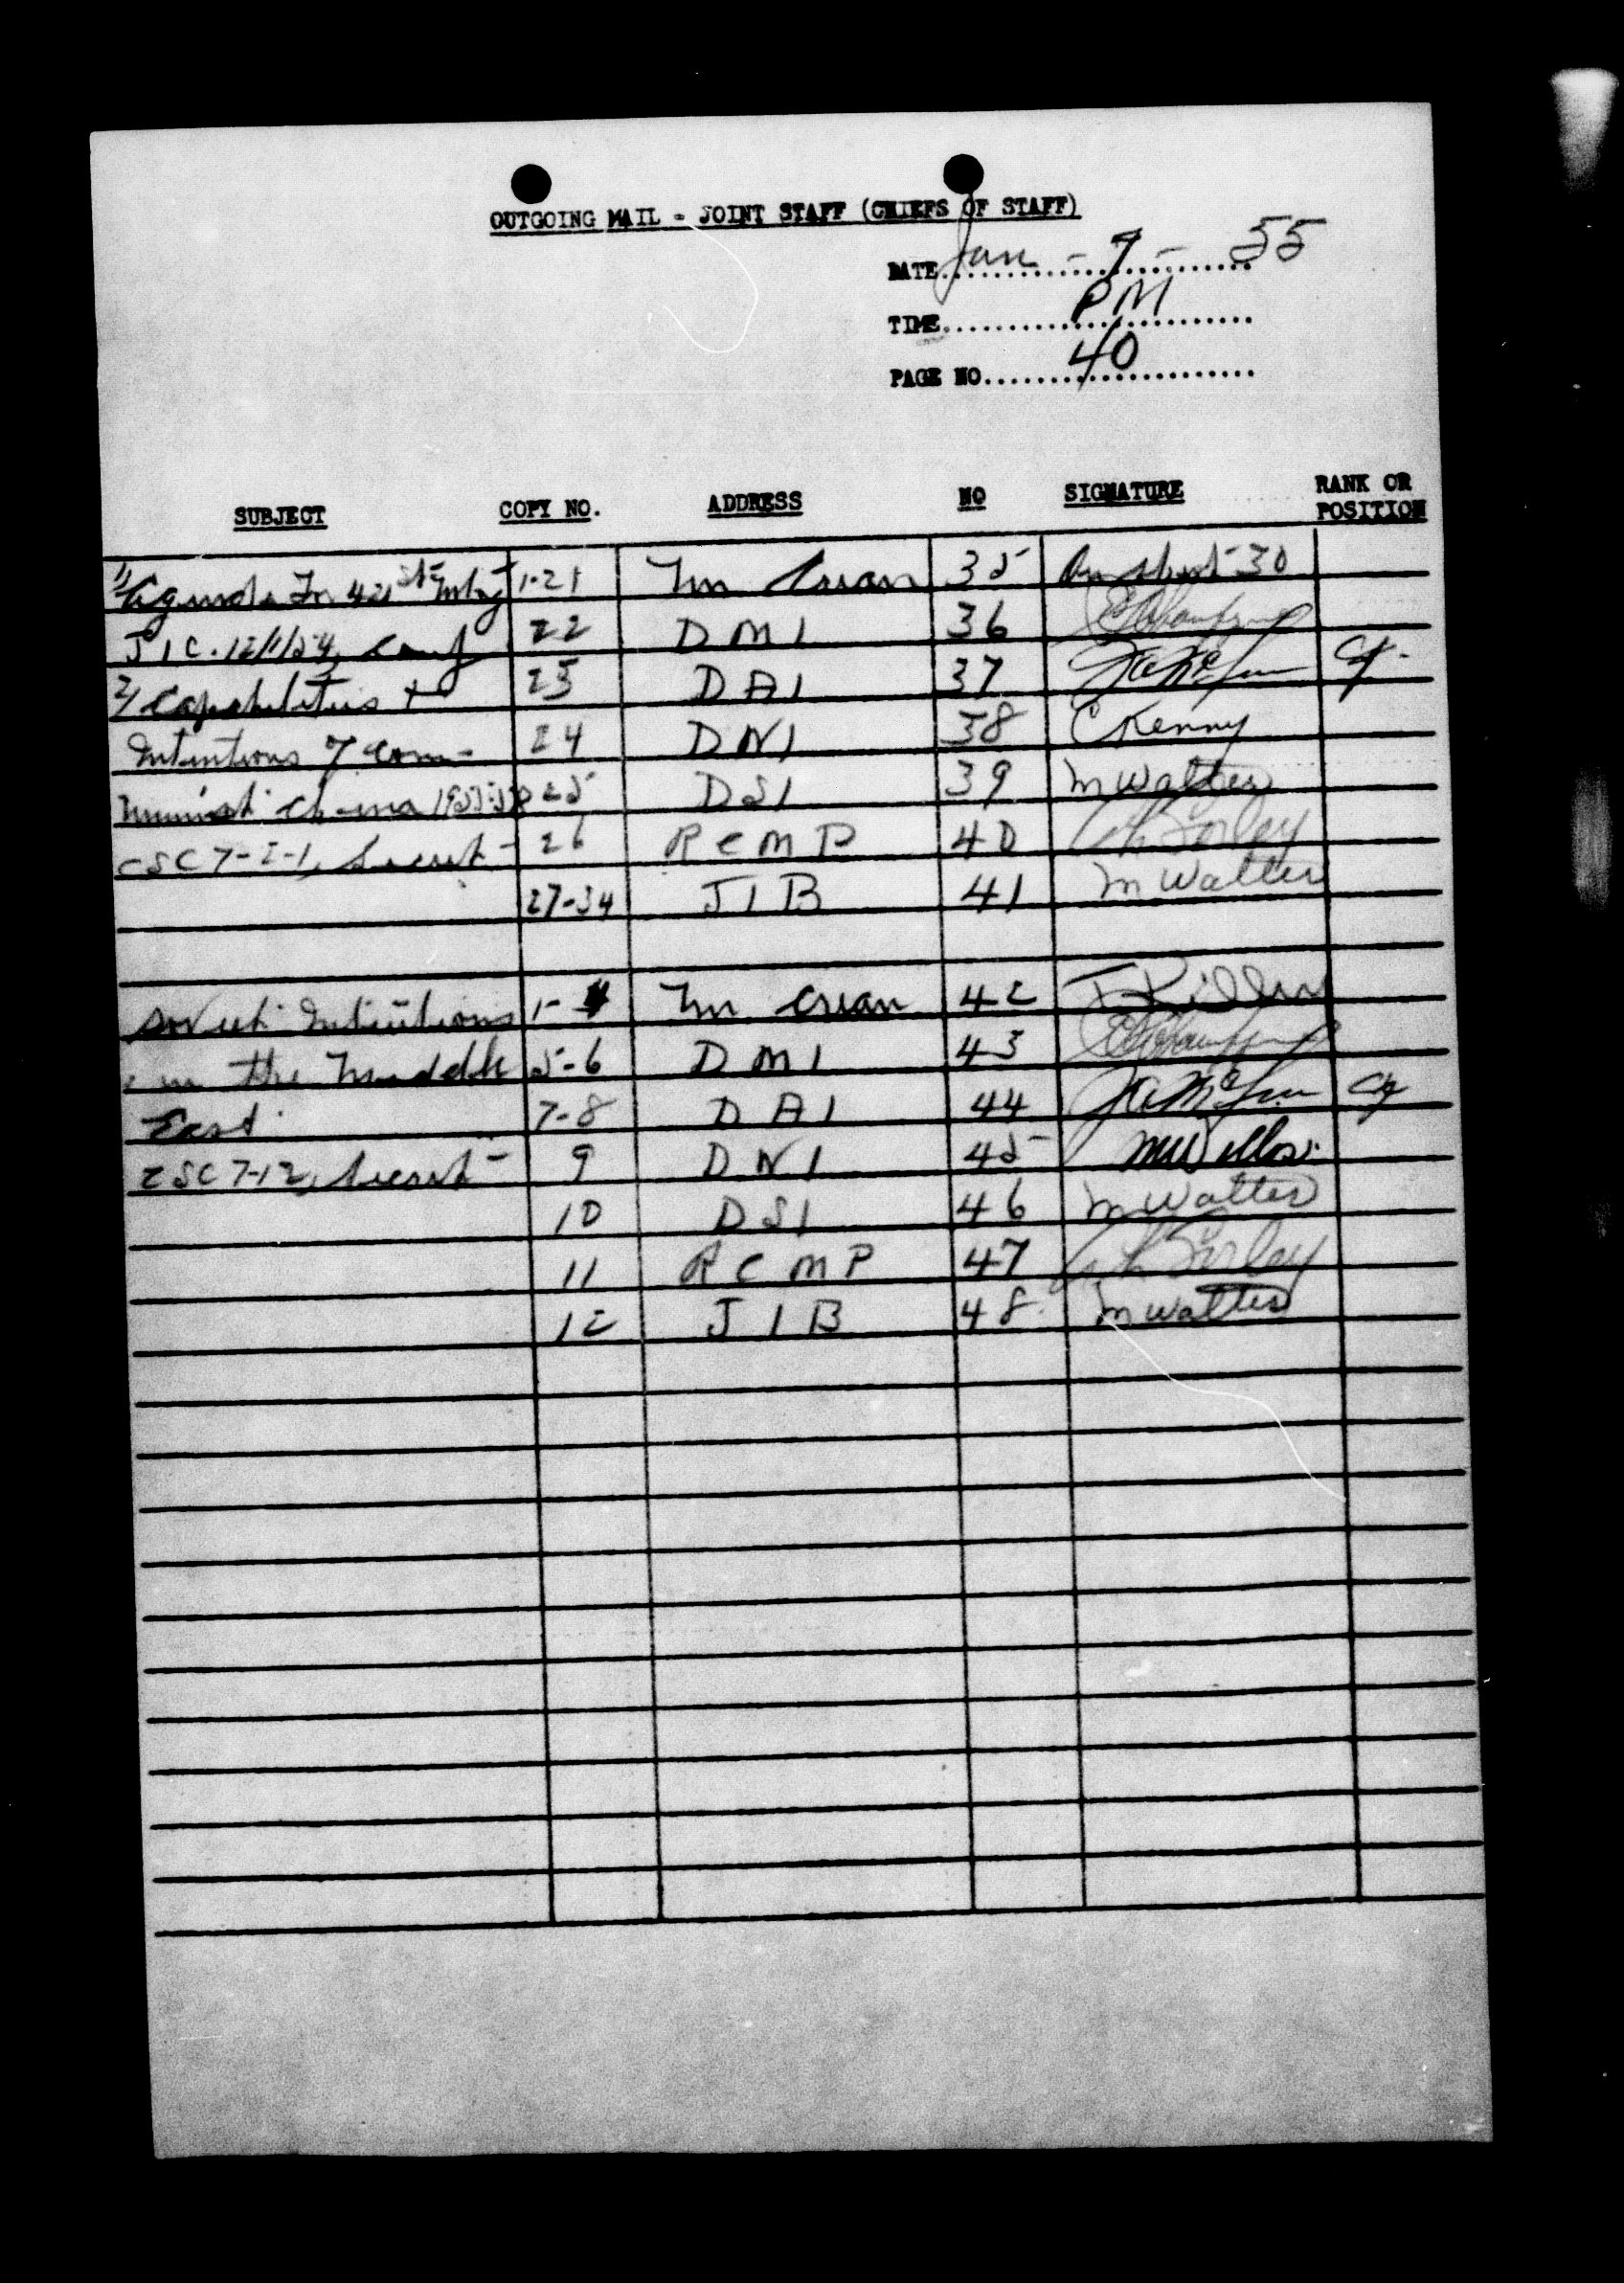 OUTGOING MAIL - JOINT STAFF (CHIEFS OF STAFF)
DATE Jan - 7 - 55
TIME PM
PAGE NO. 40
SUBJECT COPY NO. ADDRESS NO SIGNATURE RANK OR POSITION
1/ Agenda for 421st Mtg 1-21 Mr Crean 35 On sheet 30
JIC. 12/1/54, Conf 22 DMI 36
2/ Capabilities + 23 DAI 37
Intentions of Com- 24 DNI 38 C Kenny
munist China 25 DSI 39 M Walter
CSC 7-2-1, Secret 26 RCMP 40
27-34 JIB 41 M Walter
Soviet Intentions 1-4 Mr Crean 42
in the Middle 5-6 DMI 43
East 7-8 DAI 44
CSC 7-12, Secret 9 DNI 45
10 DSI 46 M Walter
11 RCMP 47
12 JIB 48 M Walter